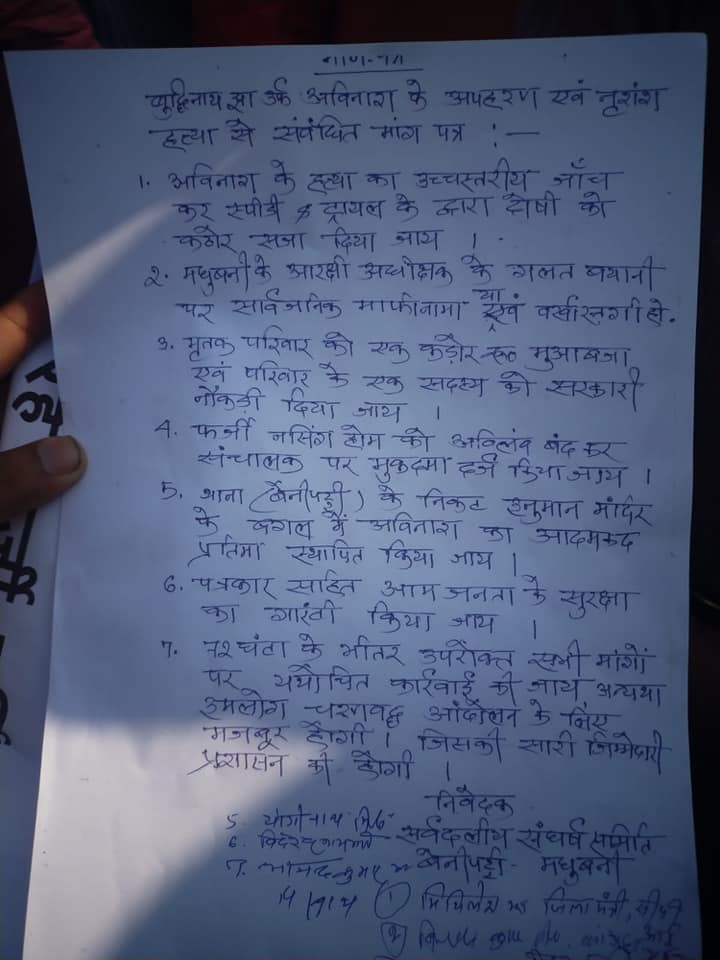 मांग-पत्र
बुद्धिनाथ झा उर्फ अविनाश के अपहरण एवं नृशंश
हत्या से संबंधित मांग पत्र :—
1. अविनाश के हत्या का उच्चस्तरीय जाँच
कर स्पीडी ट्रायल के द्वारा दोषी को
कठोर सजा दिया जाय ।
2. मधुबनी के आरक्षी अधीक्षक के गलत बयानी
पर सार्वजनिक माफीनामा या एवं बर्खास्तगी हो.
3. मृतक परिवार को एक कड़ोर रू० मुआबजा
एवं परिवार के एक सदस्य को सरकारी
नौकड़ी दिया जाय ।
4. फर्जी नर्सिंग होम को अविलंब बंद कर
संचालक पर मुकदमा दर्ज किया जाय ।
5. थाना (बेनीपट्टी) के निकट हनुमान मंदिर
के बगल में अविनाश का आदमकद
प्रतिमा स्थापित किया जाय ।
6. पत्रकार सहित आम जनता के सुरक्षा
का गारंटी किया जाय ।
7. ७२ घंटा के भीतर उपरोक्त सभी मांगों
पर यथोचित कार्रवाई की जाय अन्यथा
हमलोग चरणवद्ध आंदोलन के लिए
मजबूर होंगी । जिसकी सारी जिम्मेदारी
प्रशासन की होगी ।
निवेदक
सर्वदलीय संघर्ष समिति
बेनीपट्टी - मधुबनी
5.
6.
7.
① मिथिलेश झा जिला मंत्री,
②